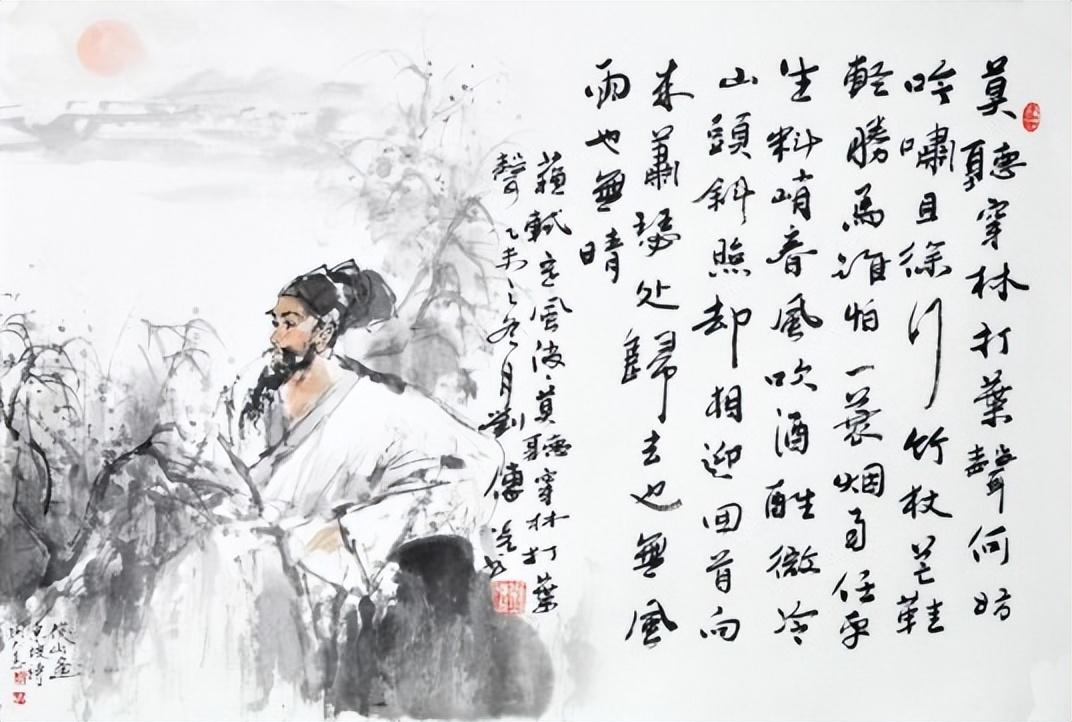 莫聽穿林打葉聲何妨
吟嘯且徐行竹杖芒鞋
輕勝馬誰怕一蓑烟雨任平
生料峭春風吹酒醒微冷
山頭斜照却相迎回首向
来蕭瑟处歸去也無風
雨也無晴
蘇軾定風波莫聽穿林打葉
聲乙未之冬月劉傳
山画
東坡詩